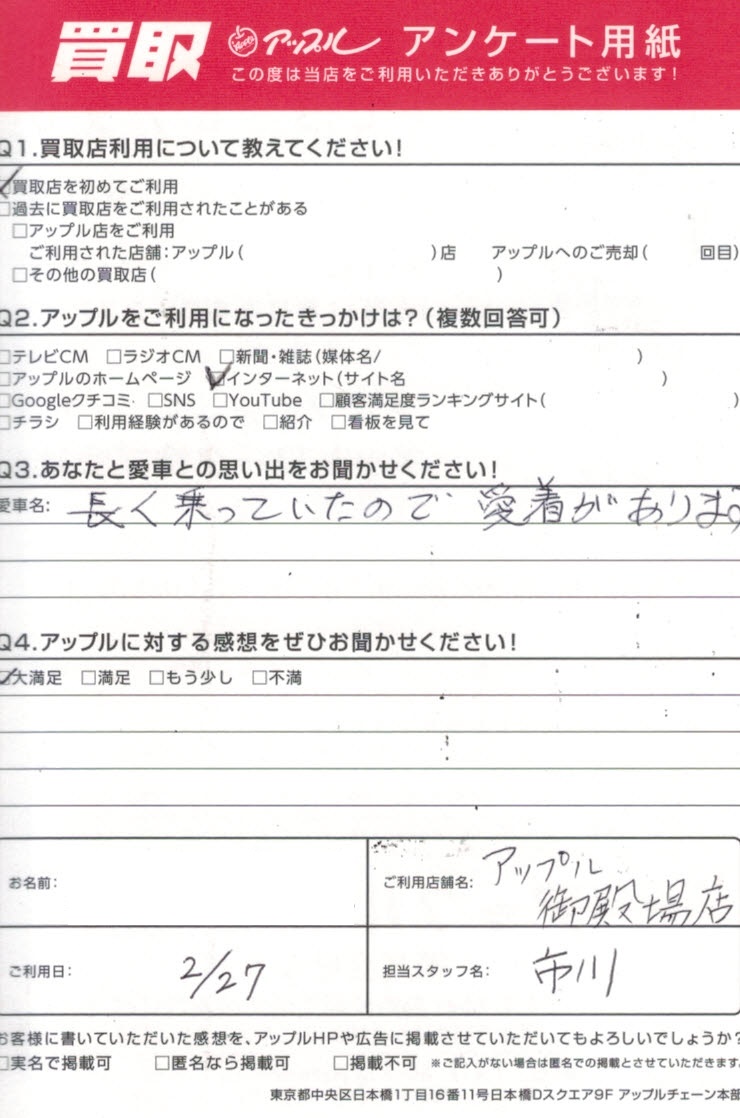 買取 アップル アンケート用紙
この度は当店をご利用いただきありがとうございます!
Q1.買取店利用について教えてください!
☑買取店を初めてご利用
□過去に買取店をご利用されたことがある
□アップル店をご利用
ご利用された店舗:アップル( )店 アップルへのご売却( 回目)
□その他の買取店( )
Q2.アップルをご利用になったきっかけは?(複数回答可)
□テレビCM □ラジオCM □新聞・雑誌(媒体名/ )
□アップルのホームページ ☑インターネット(サイト名 )
□Googleクチコミ □SNS □YouTube □顧客満足度ランキングサイト( )
□チラシ □利用経験があるので □紹介 □看板を見て
Q3.あなたと愛車との思い出をお聞かせください!
愛車名: 長く乗っていたので 愛着があります
Q4.アップルに対する感想をぜひお聞かせください!
☑大満足 □満足 □もう少し □不満
お名前:
ご利用店舗名: アップル
御殿場店
ご利用日: 2/27
担当スタッフ名: 市川
お客様に書いていただいた感想を、アップルHPや広告に掲載させていただいてもよろしいでしょうか?
□実名で掲載可 □匿名なら掲載可 □掲載不可 ※ご記入がない場合は匿名での掲載とさせていただきます。
東京都中央区日本橋1丁目16番11号日本橋Dスクエア9F アップルチェーン本部